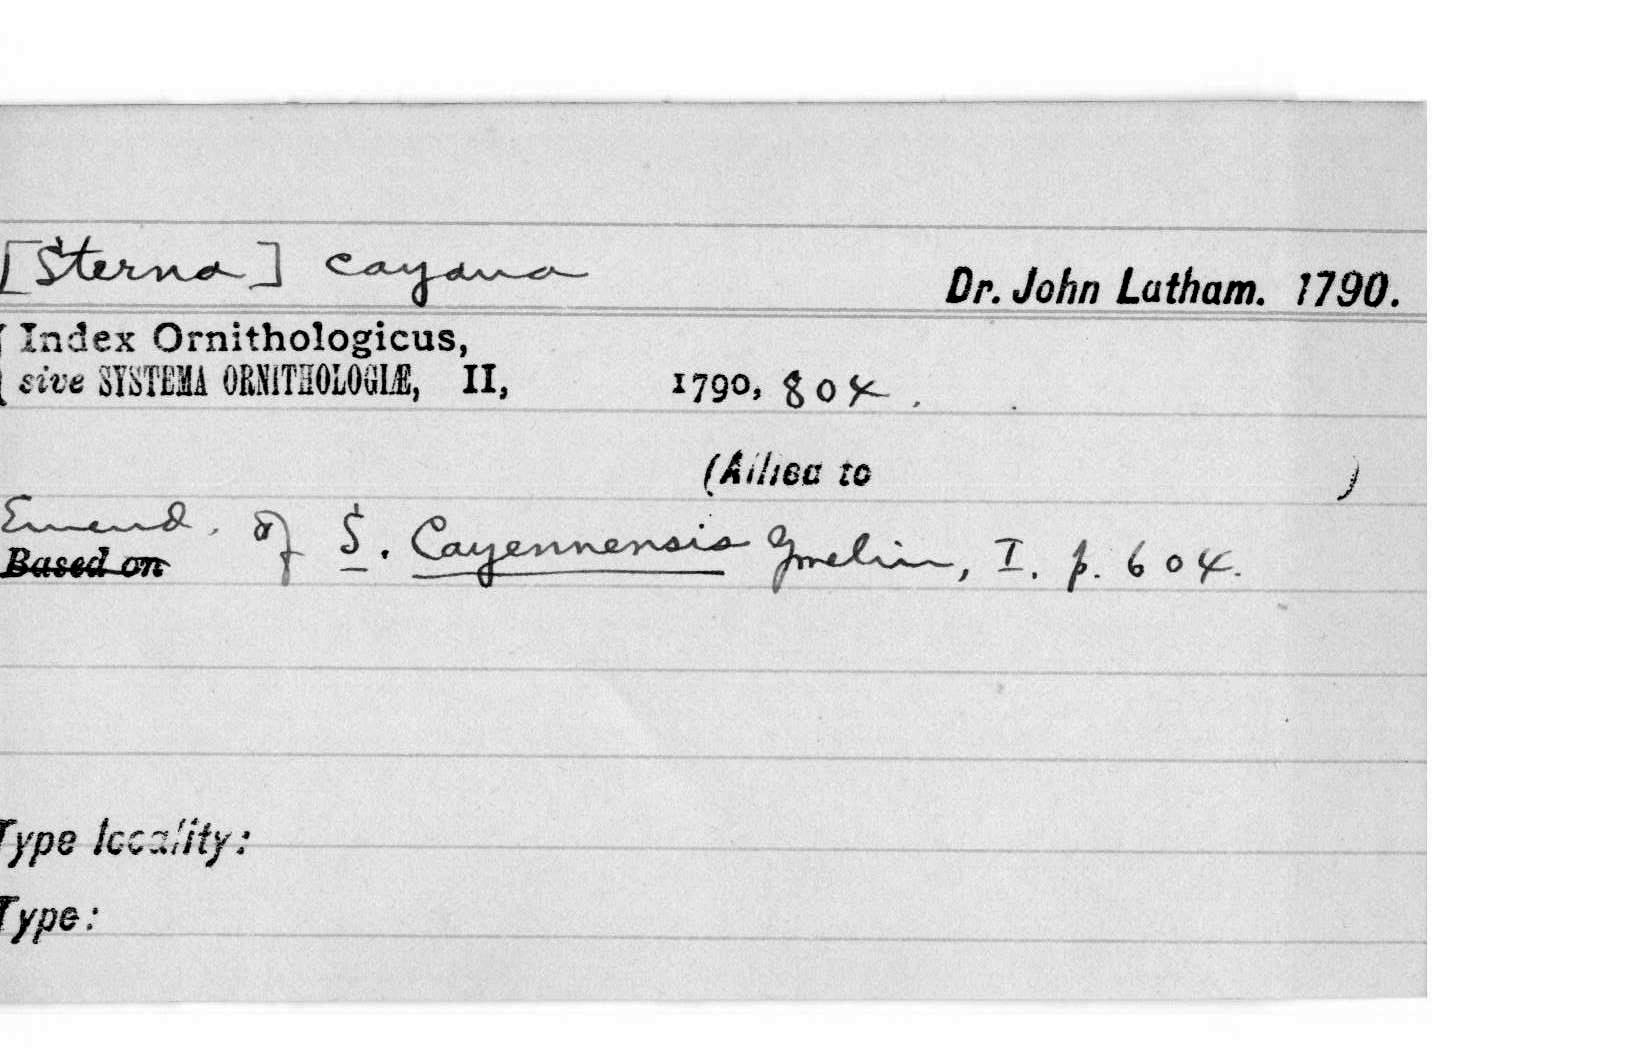 [Sterna] cayana
Dr. John Latham. 1790.
Index Ornithologicus,
sive SYSTEMA ORNITHOLOGIÆ, II, 1790, 804.
(Allied to )
Emend. of S. Cayennensis Gmelin, I. p. 604.
Based on
Type locality:
Type: